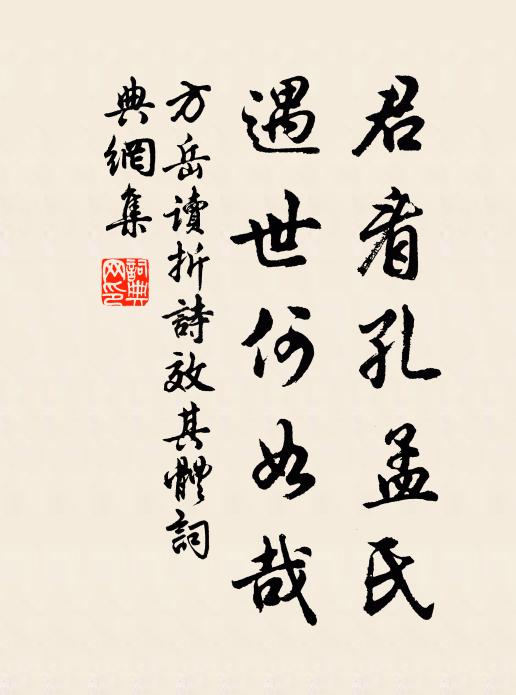 君看孔孟氏
遇世何如哉
方岳讀折詩效其體詞
典網集
詞典
网印